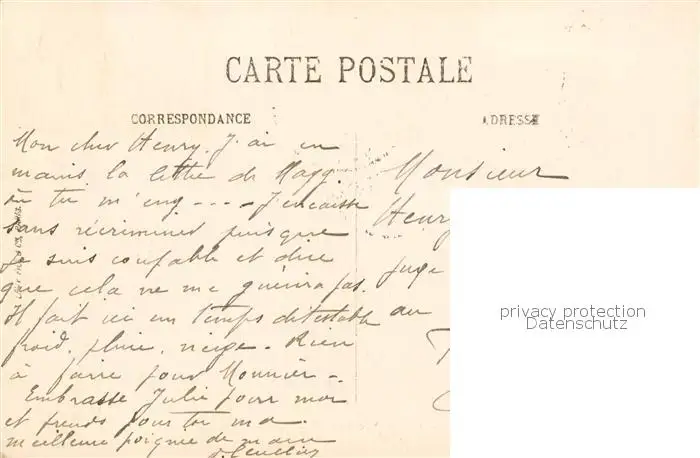 CARTE POSTALE
CORRESPONDANCE
ADRESSE
Mon cher Henry. J'ai en
mains la lettre de Magg.
où tu m'eng - - - J'encaisse
sans récriminer puisque
je suis coupable et dire
que cela ne me guérira pas.
Il fait ici un temps détestable
froid, pluie, neige. Rien
à faire pour Monnier -.
Embrasse Julie pour moi
et prends pour toi ma
meilleure poignée de main
Monsieur
Henry
juge
au
privacy protection
Datenschutz